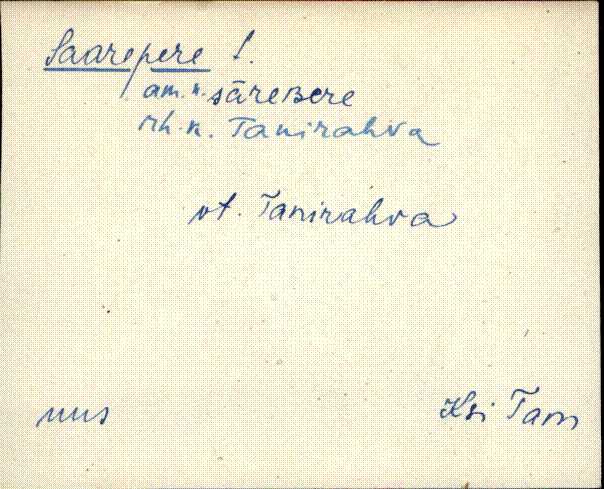 Saarepere t.
am. n. säreʙere
rh. n. Tanirahva
vt. Tanirahva
mus Ksi Tam